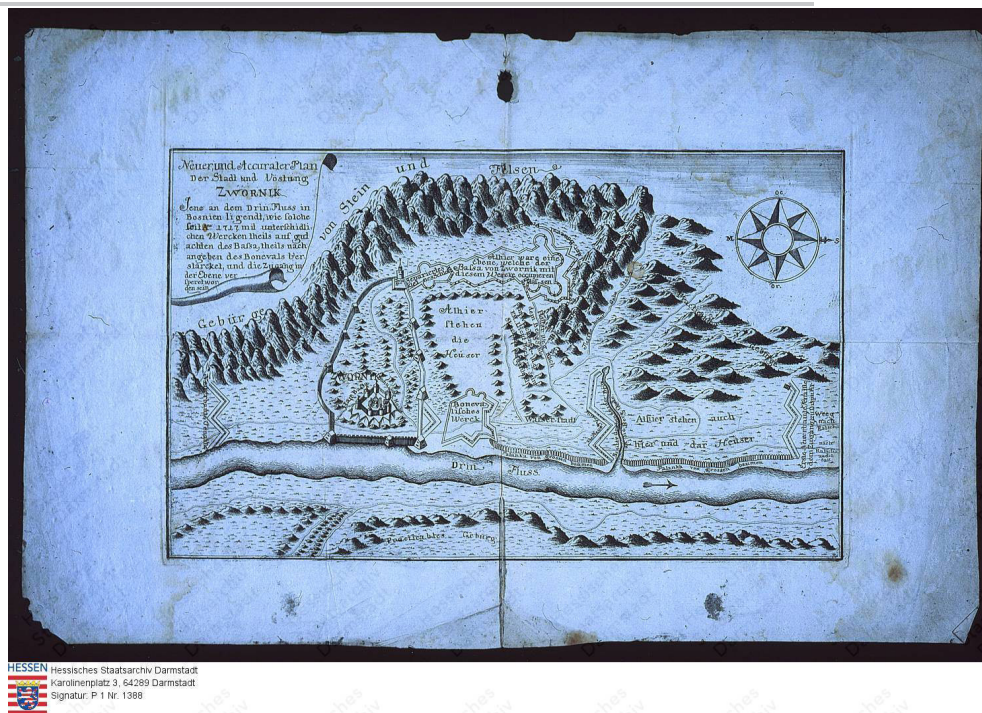 Neuer und Accurater Plan
Der Stadt und Vöstung
ZWORNIK
Jene an dem Drin Fluss in
Bosnien ligendt, wie solche
seit A 1717 mit unterschidli-
chen Wercken theils auf gut
achten des Bassa, theils nach
angeben des Bonevals Ver
stärcket, und die Zugäng in
der Ebene ver
speret wor
den sein.
Gebürge von Stein und Felsen
Oc.
M.
S
Or.
Alhier ware eine
Ebene, welche der
Bassa von Zwornik mit
diesem Wercke occupieren
lassen
Alhier
stehen
die
Heuser
ZWORNIK
Boneva
lisches
Werck
Wasserstadt
Alhier stehen auch
hier und dar Heuser
Weeg
nach
Palanka von
Palanka von
Drin Fluss
Gebürg
HESSEN
Hessisches Staatsarchiv Darmstadt
Karolinenplatz 3, 64289 Darmstadt
Signatur: P 1 Nr. 1388